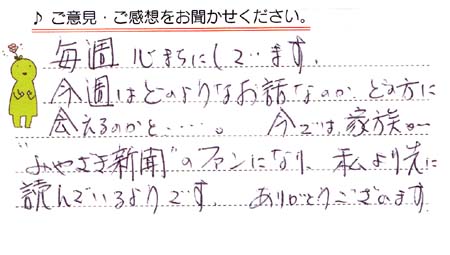 ♪ ご意見・ご感想をお聞かせください。
毎週 心まちにしています。
今週はどのようなお話なのか、どの方に
会えるのかと・・・・・。 今では、家族が
"みやざき新聞"のファンになり、私より先に
読んでいるようです。 ありがとうございます